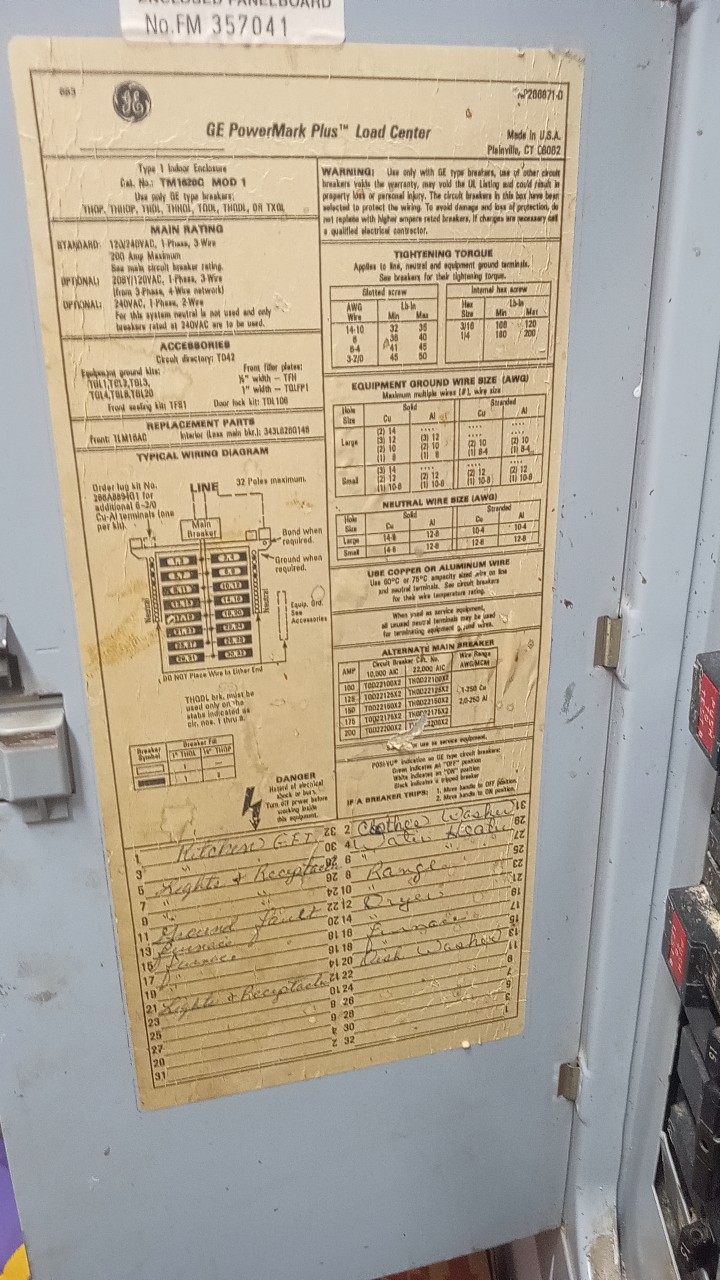 ENCLOSED PANELBOARD
No. FM 357041
GE
GE PowerMark Plus™ Load Center
Made in U.S.A.
Plainville, CT 06062
Type 1 Indoor Enclosure
Cat. No.: TM1620C MOD 1
Use only GE type breakers;
THQP, THHQP, THQL, THHQL, TQDL, THQDL, OR TXQL
MAIN RATING
STANDARD: 120/240VAC, 1-Phase, 3 Wire
200 Amp Maximum
See main circuit breaker rating.
OPTIONAL: 208Y/120VAC, 1-Phase, 3-Wire
(from 3-Phase, 4 Wire network)
OPTIONAL: 240VAC, 1-Phase, 2-Wire
For this system neutral is not used and only
breakers rated at 240VAC are to be used.
ACCESSORIES
Circuit directory: TD42
Equipment ground kits:
Front filler plates:
½" width – TFH
1" width – TQLFP1
Door lock kit: TDL106
REPLACEMENT PARTS
Interior (Less main bkr.):
TYPICAL WIRING DIAGRAM
Order lug kit No.
for
additional 6-2/0
Cu-Al terminals (one
per kit).
LINE
32 Poles maximum.
Main
Breaker
Bond when
required.
Ground when
required.
Neutral
Neutral
Equip. Grd.
See
Accessories
DO NOT Place Wire In Either End
THQDL brk. must be
used only on the
stabs indicated as
cir. nos. 1 thru 8.
Breaker
Symbol
Breaker Fill
1" THQL
½" THQP
DANGER
Hazard of electrical
shock or burn.
Turn off power before
working inside
this equipment.
WARNING: Use only with GE type breakers, use of other circuit
breakers voids the warranty, may void the UL Listing and could result in
property loss or personal injury. The circuit breakers in this box have been
selected to protect the wiring. To avoid damage and loss of protection, do
not replace with higher ampere rated breakers. If changes are necessary call
a qualified electrical contractor.
TIGHTENING TORQUE
Applies to line, neutral and equipment ground terminals.
See breakers for their tightening torque.
Slotted screw
Internal hex screw
AWG Wire Lb-In Min Max
Hex Size Lb-In Min Max
14-10 32 35
8 38 40
6-4 41 45
3-2/0 45 50
3/16 100 120
1/4 180 200
EQUIPMENT GROUND WIRE SIZE (AWG)
Maximum multiple wires (#), wire size
Hole Size
Solid
Stranded
Cu Al Cu Al
Large
(2) 14
(3) 12 (3) 12
(2) 10 (2) 10 (2) 10 (2) 10
(1) 8 (1) 8 (1) 8-4 (1) 8-4
Small
(3) 14
(2) 12 (2) 12 (2) 12 (2) 12
(1) 10-8 (1) 10-8 (1) 10-8 (1) 10-8
NEUTRAL WIRE SIZE (AWG)
Hole Size
Solid
Stranded
Cu Al Cu Al
Large 14-8 12-8 10-4 10-4
Small 14-8 12-8 12-8 12-8
USE COPPER OR ALUMINUM WIRE
Use 60°C or 75°C ampacity sized wire on line
and neutral terminals. See circuit breakers
for their wire temperature rating.
When used as service equipment,
all unused neutral terminals may be used
for terminating equipment ground wires.
ALTERNATE MAIN BREAKER
AMP
Circuit Breaker Cat. No.
10,000 AIC 22,000 AIC
Wire Range
AWG/MCM
100
125
150
175
200
1-250 Cu
2/0-250 Al
use as service equipment.
POSI-VU® indication on GE type circuit breakers:
Green indicates an "OFF" position
White indicates an "ON" position
Black indicates a tripped breaker
IF A BREAKER TRIPS: 1. Move handle to OFF position.
2. Move handle to ON position.
1 Kitchen 32 2 Clothes Washer 31
3 " 30 4 Water Heater
5 Lights & Receptacle 6 "
7 " 26 8 Range
9 " 24 10 "
11 Ground Fault 22 12 Dryer
13 Furnace 20 14 "
15 Furnace 18 16 Furnace
17 16 18 "
19 14 20 Dish Washer
21 Lights & Receptacle 12 22
23 10 24
25 8 26
27 6 28
29 4 30
31 2 32
15
15